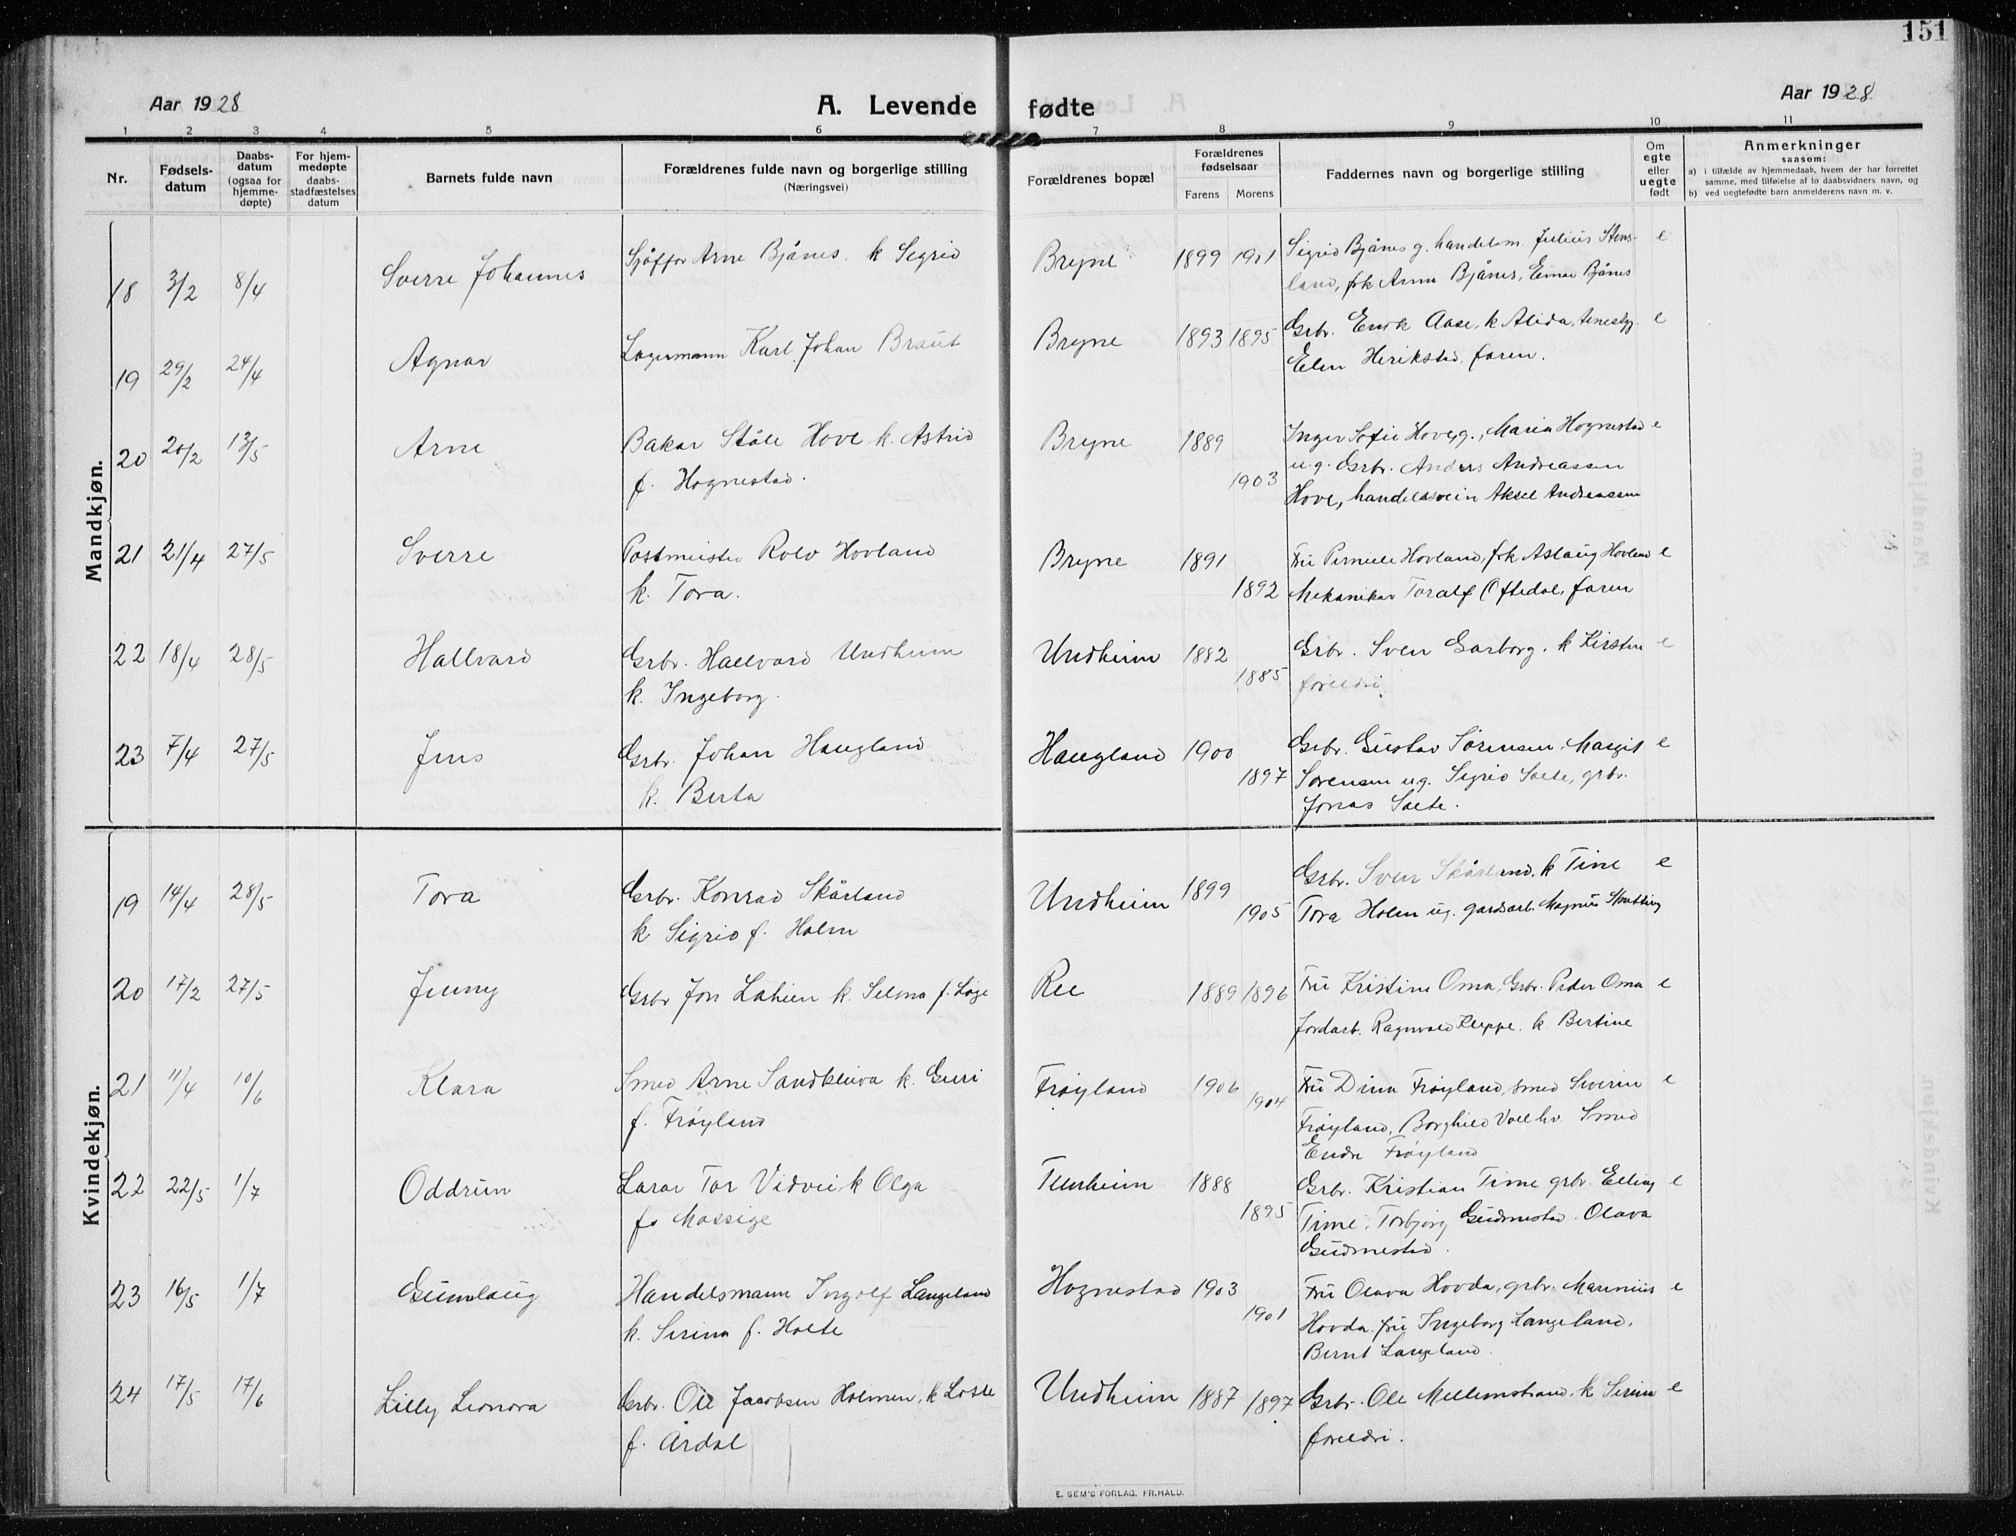 151
Aar 1928
A. Levende fødte
Aar 1928
1 2 3 4 5 6 7 8 9 10 11
Nr.
Fødsels-
datum
Daabs-
datum
(ogsaa for
hjemme-
døpte)
For hjem-
medøpte
daabs-
stadfæstelses
datum
Barnets fulde navn
Forældrenes fulde navn og borgerlige stilling
(Næringsvei)
Forældrenes bopæl
Forældrenes
fødselsaar
Farens Morens
Faddernes navn og borgerlige stilling
Om
egte
eller
uegte
født
Anmerkninger
saasom:
a) i tilfælde av hjemmedaab, hvem der har forrettet
samme, med tilføielse af to daabsvidners navn, og
b) ved uegtefødte barn anmelderens navn m. v.
Mandkjøn.
18 3/2 8/4 Sverre Johannes Sjåffør Arne Bjånes. k Sigrid Bryne 1899 1901 Sigrid Bjånes g. handelsm. Julius Stens- e
land, frk Anna Bjånes, Einar Bjånes
19 29/2 24/4 Agnar Lagermann Karl Johan Braut Bryne 1893 1895 Grb. Enok Aase, k Alida, tenestg. e
Elen Herikstad, faren.
20 20/2 13/5 Arne Bakar Ståle Hove k. Astrid Bryne 1889 Inger Sofie Hove g., Maria Hognestad e
f. Hognestad. 1903 u.g. Grbr. Anders Andreassen
Hove, handelsvein Aksel Andreassen
21 21/4 27/5 Sverre Postmeister Rolv Hovland Bryne 1891 Fru Pernele Hovland, frk Aslaug Hovland e
k. Tora. 1892 Mekanikar Toralf Oftedal, faren
22 18/4 28/5 Hallvard Grbr. Hallvard Undheim Undheim 1882 Grbr. Sven Garborg. k Kirsten e
k. Ingeborg. 1885 foreldri.
23 7/4 27/5 Jens Grbr. Johan Haugland Haugland 1900 Grbr. Gustav Sørensen, Margit e
k. Berta 1897 Sørensen ug. Sigrid Salte, grbr.
Jonas Salte.
Kvindekjøn.
19 14/4 28/5 Tora Grbr. Konrad Skårland Undheim 1899 Grbr. Sven Skårland. k Tine e
k Sigrid f. Holm 1905 Tora Holm ug. gardsarb. Magnus
20 17/2 27/5 Jenny Grbr Jon Lahien k. Selma f. Løge Ree 1889 1896 Fru Kristine Oma, Grbr. Peder Oma e
Jordarb. Ragnvald Kleppe. k. Bertine
21 11/4 10/6 Klara Smed Arne Sandkleiva k. Guri Frøyland 1906 Fru Dina Frøyland, smed Siverin e
f. Frøyland 1904 Frøyland, Borghild Voll hv Smed
Endre Frøyland
22 22/5 1/7 Oddrun Lærar Tor Vidvei k Olga Tunheim 1888 Grbr. Kristian Time grbr. Elling e
f. Mossige 1895 Time. Torbjørg Gudmestad. Olava
Gudmestad.
23 16/5 1/7 Gunnlaug Handelsmann Ingolf Langeland Hognestad 1903 Fru Olava Hovda, grbr. Marinius e
k. Serina f. Holte 1901 Hovda. fru Ingeborg Langeland.
Bernt Langland.
24 17/5 17/6 Lilly Leonora Grbr. Ole Jacobsen Holmen, k Lovise Undheim 1887 1897 Grbr. Ole Mellemstrand. k Serine e
f. Årdal foreldri.
E. SEM'S FORLAG. FR.HALD.